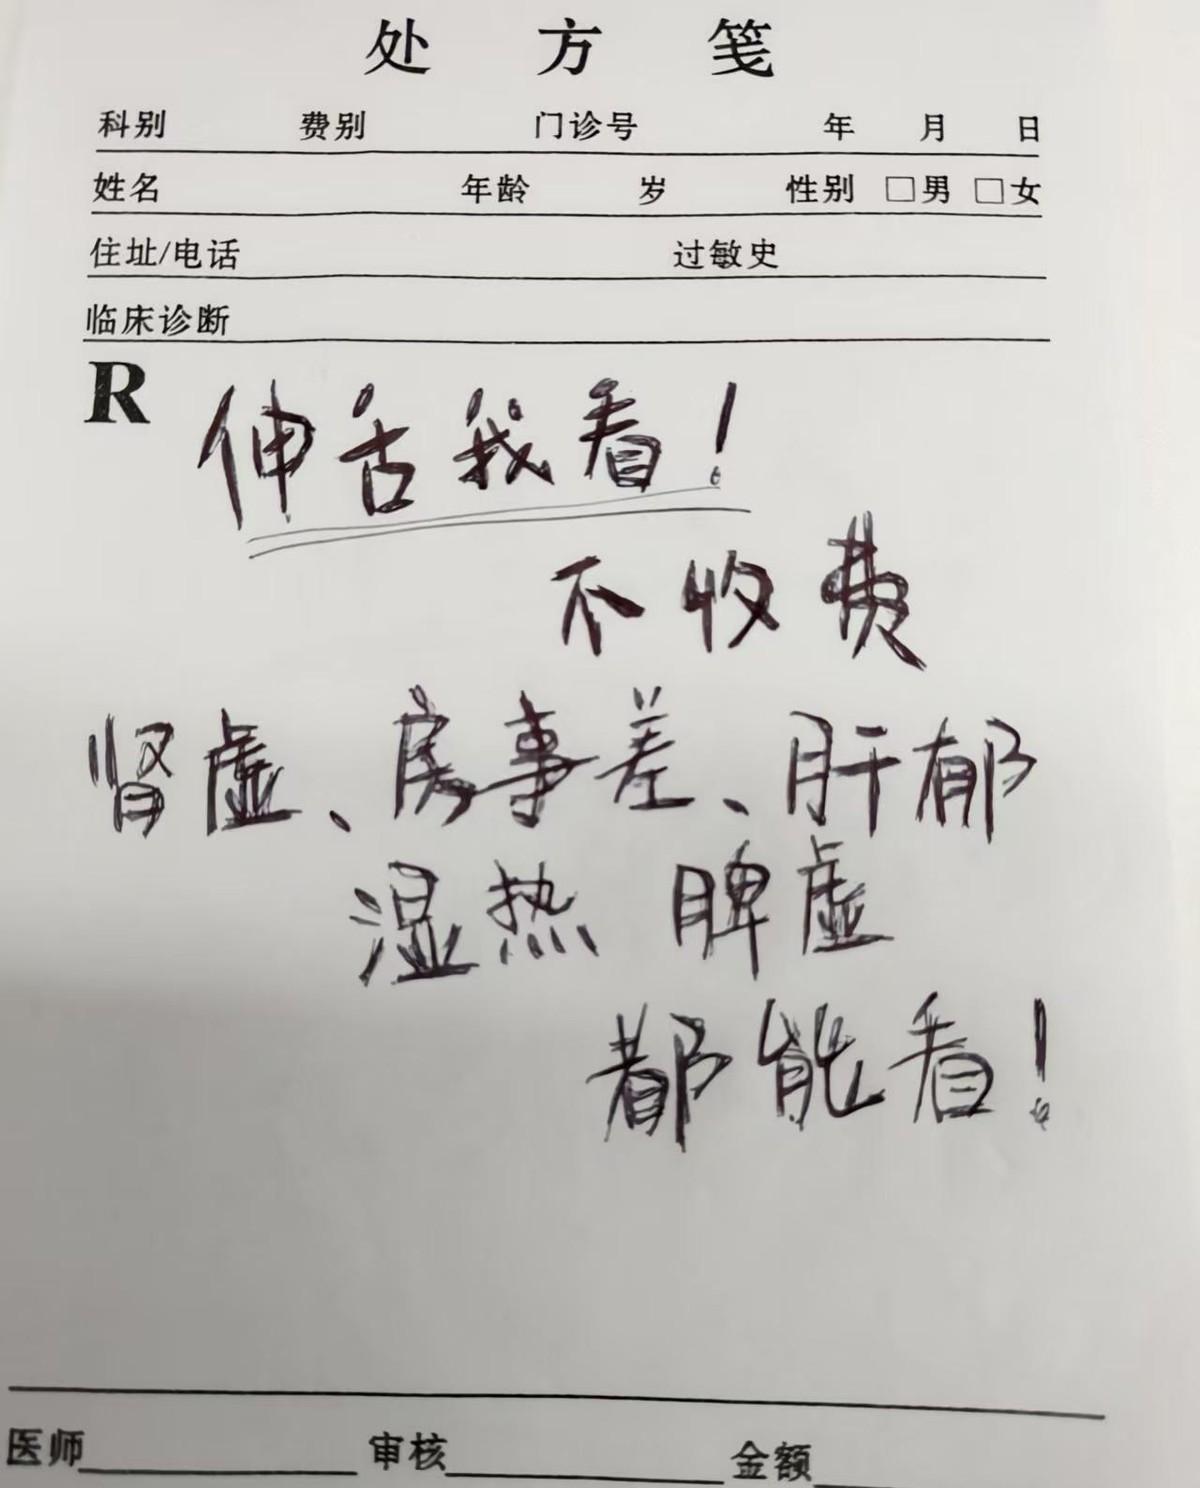 处方笺
科别 费别 门诊号 年 月 日
姓名 年龄 岁 性别 □男 □女
住址/电话 过敏史
临床诊断
R
伸舌我看！
不收费
肾虚、房事差、肝郁
湿热 脾虚
都能看！
医师 审核 金额